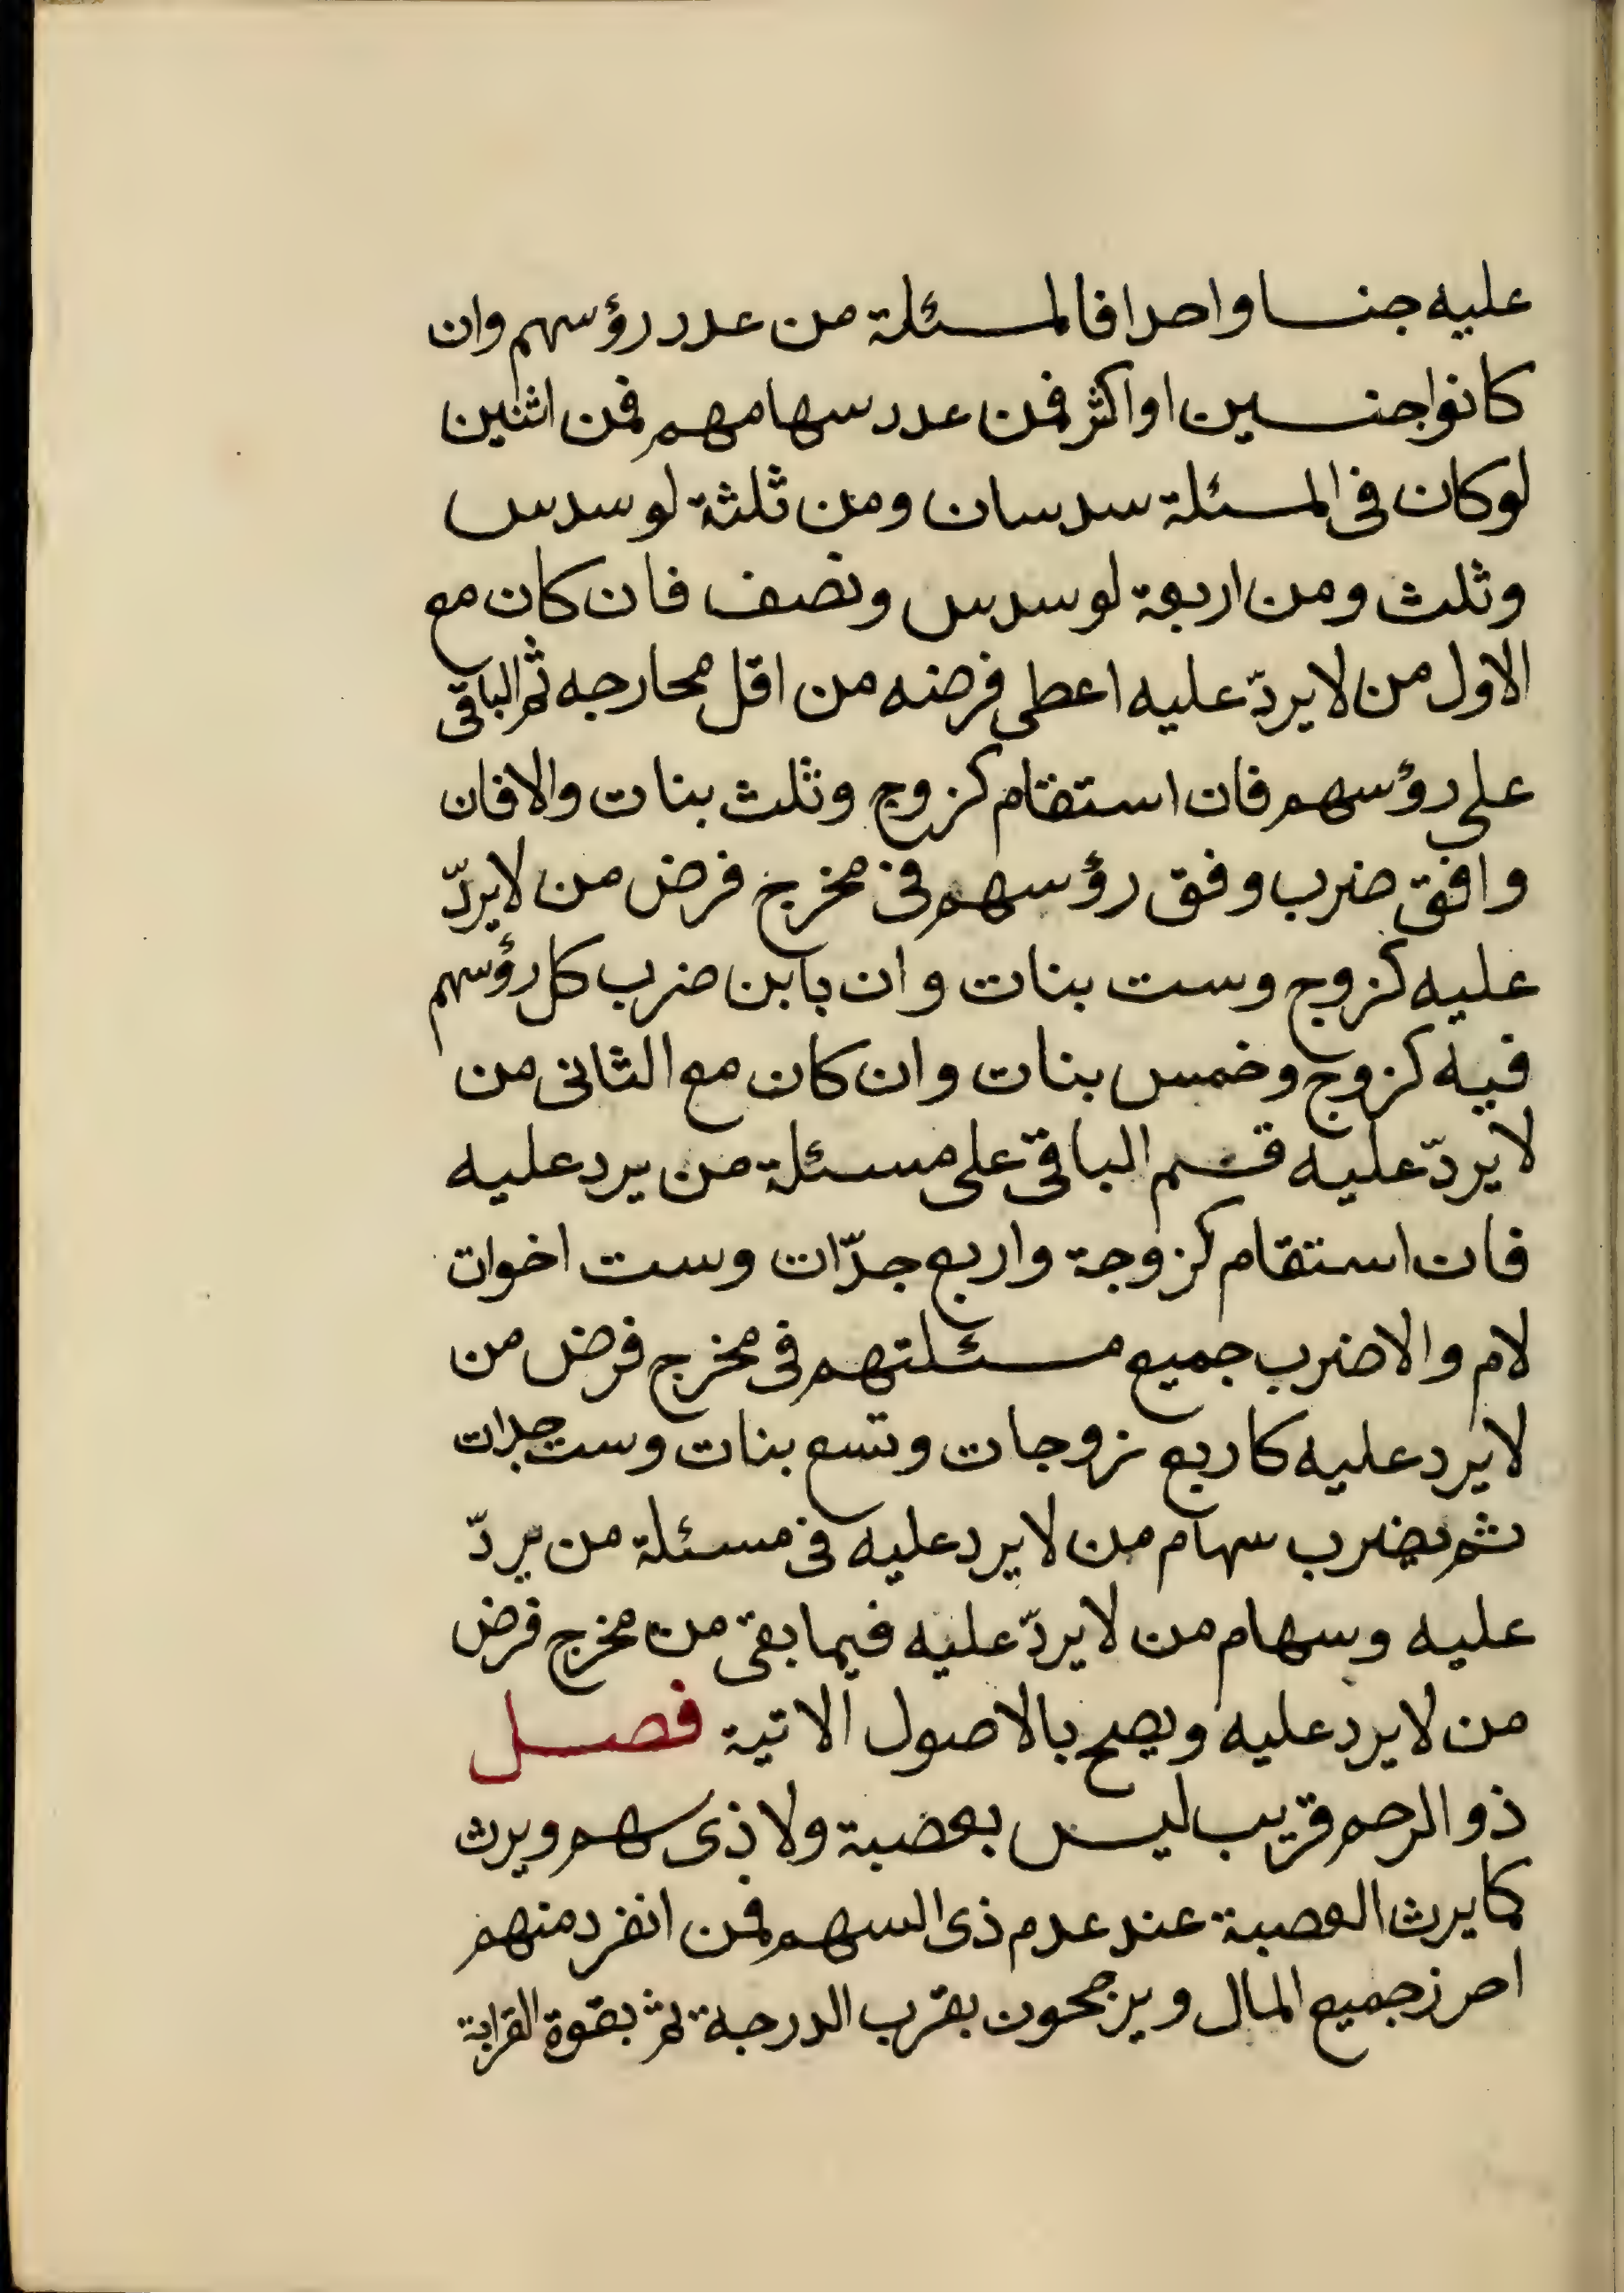 عليه جنسا واحدا فالمسئلة من عدد رؤسهم وان
كانوا جنسين او اكثر فمن عدد سهامهم فمن اثنين
لو كان فى المسئلة سدسان ومن ثلثة لو سدس
وثلث ومن اربعة لو سدس ونصف فان كان مع
الاول من لا يردّ عليه اعطى فرضه من اقل محارجه ثم الباقى
على رؤسهم فان استقام كزوج وثلث بنات والا فان
وافق ضرب وفق رؤسهم فى مخرج فرض من لا يردّ
عليه كزوج وست بنات وان باين ضرب كل رؤسهم
فيه كزوج وخمس بنات وان كان مع الثانى من
لا يردّ عليه قسم الباقى على مسئلة من يرد عليه
فان استقام كزوجة واربع جدّات وست اخوات
لام والا ضرب جميع مسئلتهم فى مخرج فرض من
لا يرد عليه كاربع زوجات وتسع بنات وست جدات
ثم يضرب سهام من لا يرد عليه فى مسئلة من يردّ
عليه وسهام من لا يردّ عليه فيما بقى من مخرج فرض
من لا يرد عليه ويصح بالاصول الاتية فصل
ذو الرحم قريب ليس بعصبة ولا ذى سهم ويرث
كما يرث العصبة عند عدم ذى السهم فمن انفرد منهم
احرز جميع المال ويرجحون بقرب الدرجة ثم بقوة القرابة